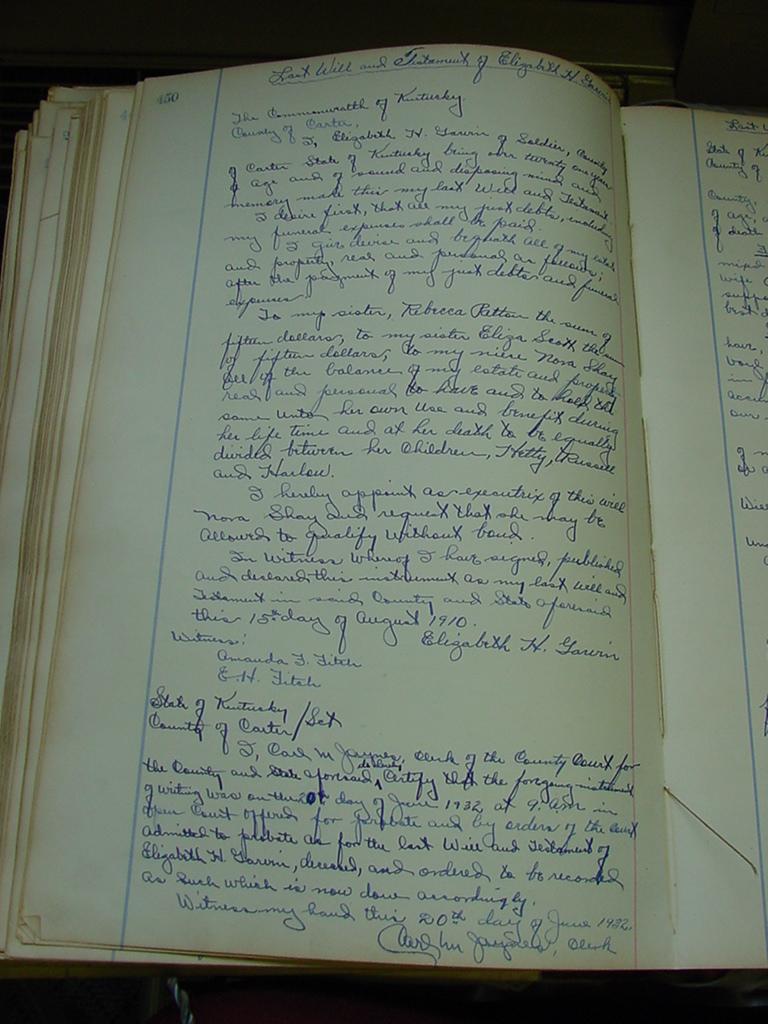 450
Last Will and Testament of Elizabeth H. Garvin
The Commonwealth of Kentucky
County of Carter,
I, Elizabeth H. Garvin of Soldier, County
of Carter State of Kentucky being over twenty one years
of age and of sound and disposing mind and
memory make this my last Will and Testament.
I desire first, that all my just debts, including
my funeral expenses shall be paid.
I give devise and bequeath all of my estate
and property, real and personal as follows;
after the payment of my just debts and funeral
expenses.
To my sister, Rebecca Patton the sum of
fifteen dollars, to my sister Eliza Scott the sum
of fifteen dollars, to my niece Nora Shay
all of the balance of my estate and property
real and personal to have and to hold the
same unto her own use and benefit during
her life time and at her death to be equally
divided between her Children, Hetty, Russell
and Harlow.
I hereby appoint as executrix of this will
Nora Shay and request that she may be
allowed to qualify without bond.
In Witness Whereof I have signed, published
and declared this instrument as my last will and
Testament in said County and State aforesaid
this 15th day of August 1910.
Witness: Elizabeth H. Garvin
Amanda F. Fitch
E. H. Fitch
State of Kentucky
County of Carter / Sct
I, Carl M Jaynes, Clerk of the County Court for
the County and State aforesaid, do hereby Certify that the foregoing instrument
of writing was on the 20th day of June 1932, at 9. A.M in
open Court offered for probate and by orders of the court
admitted to probate as for the last Will and Testament of
Elizabeth H. Garvin, deceased, and ordered to be recorded
as such which is now done accordingly.
Witness my hand this 20th day of June 1932.
Carl M Jaynes, Clerk
Last
State of
County of
County,
of age,
of death
mind
wife
have,
in
our
Will